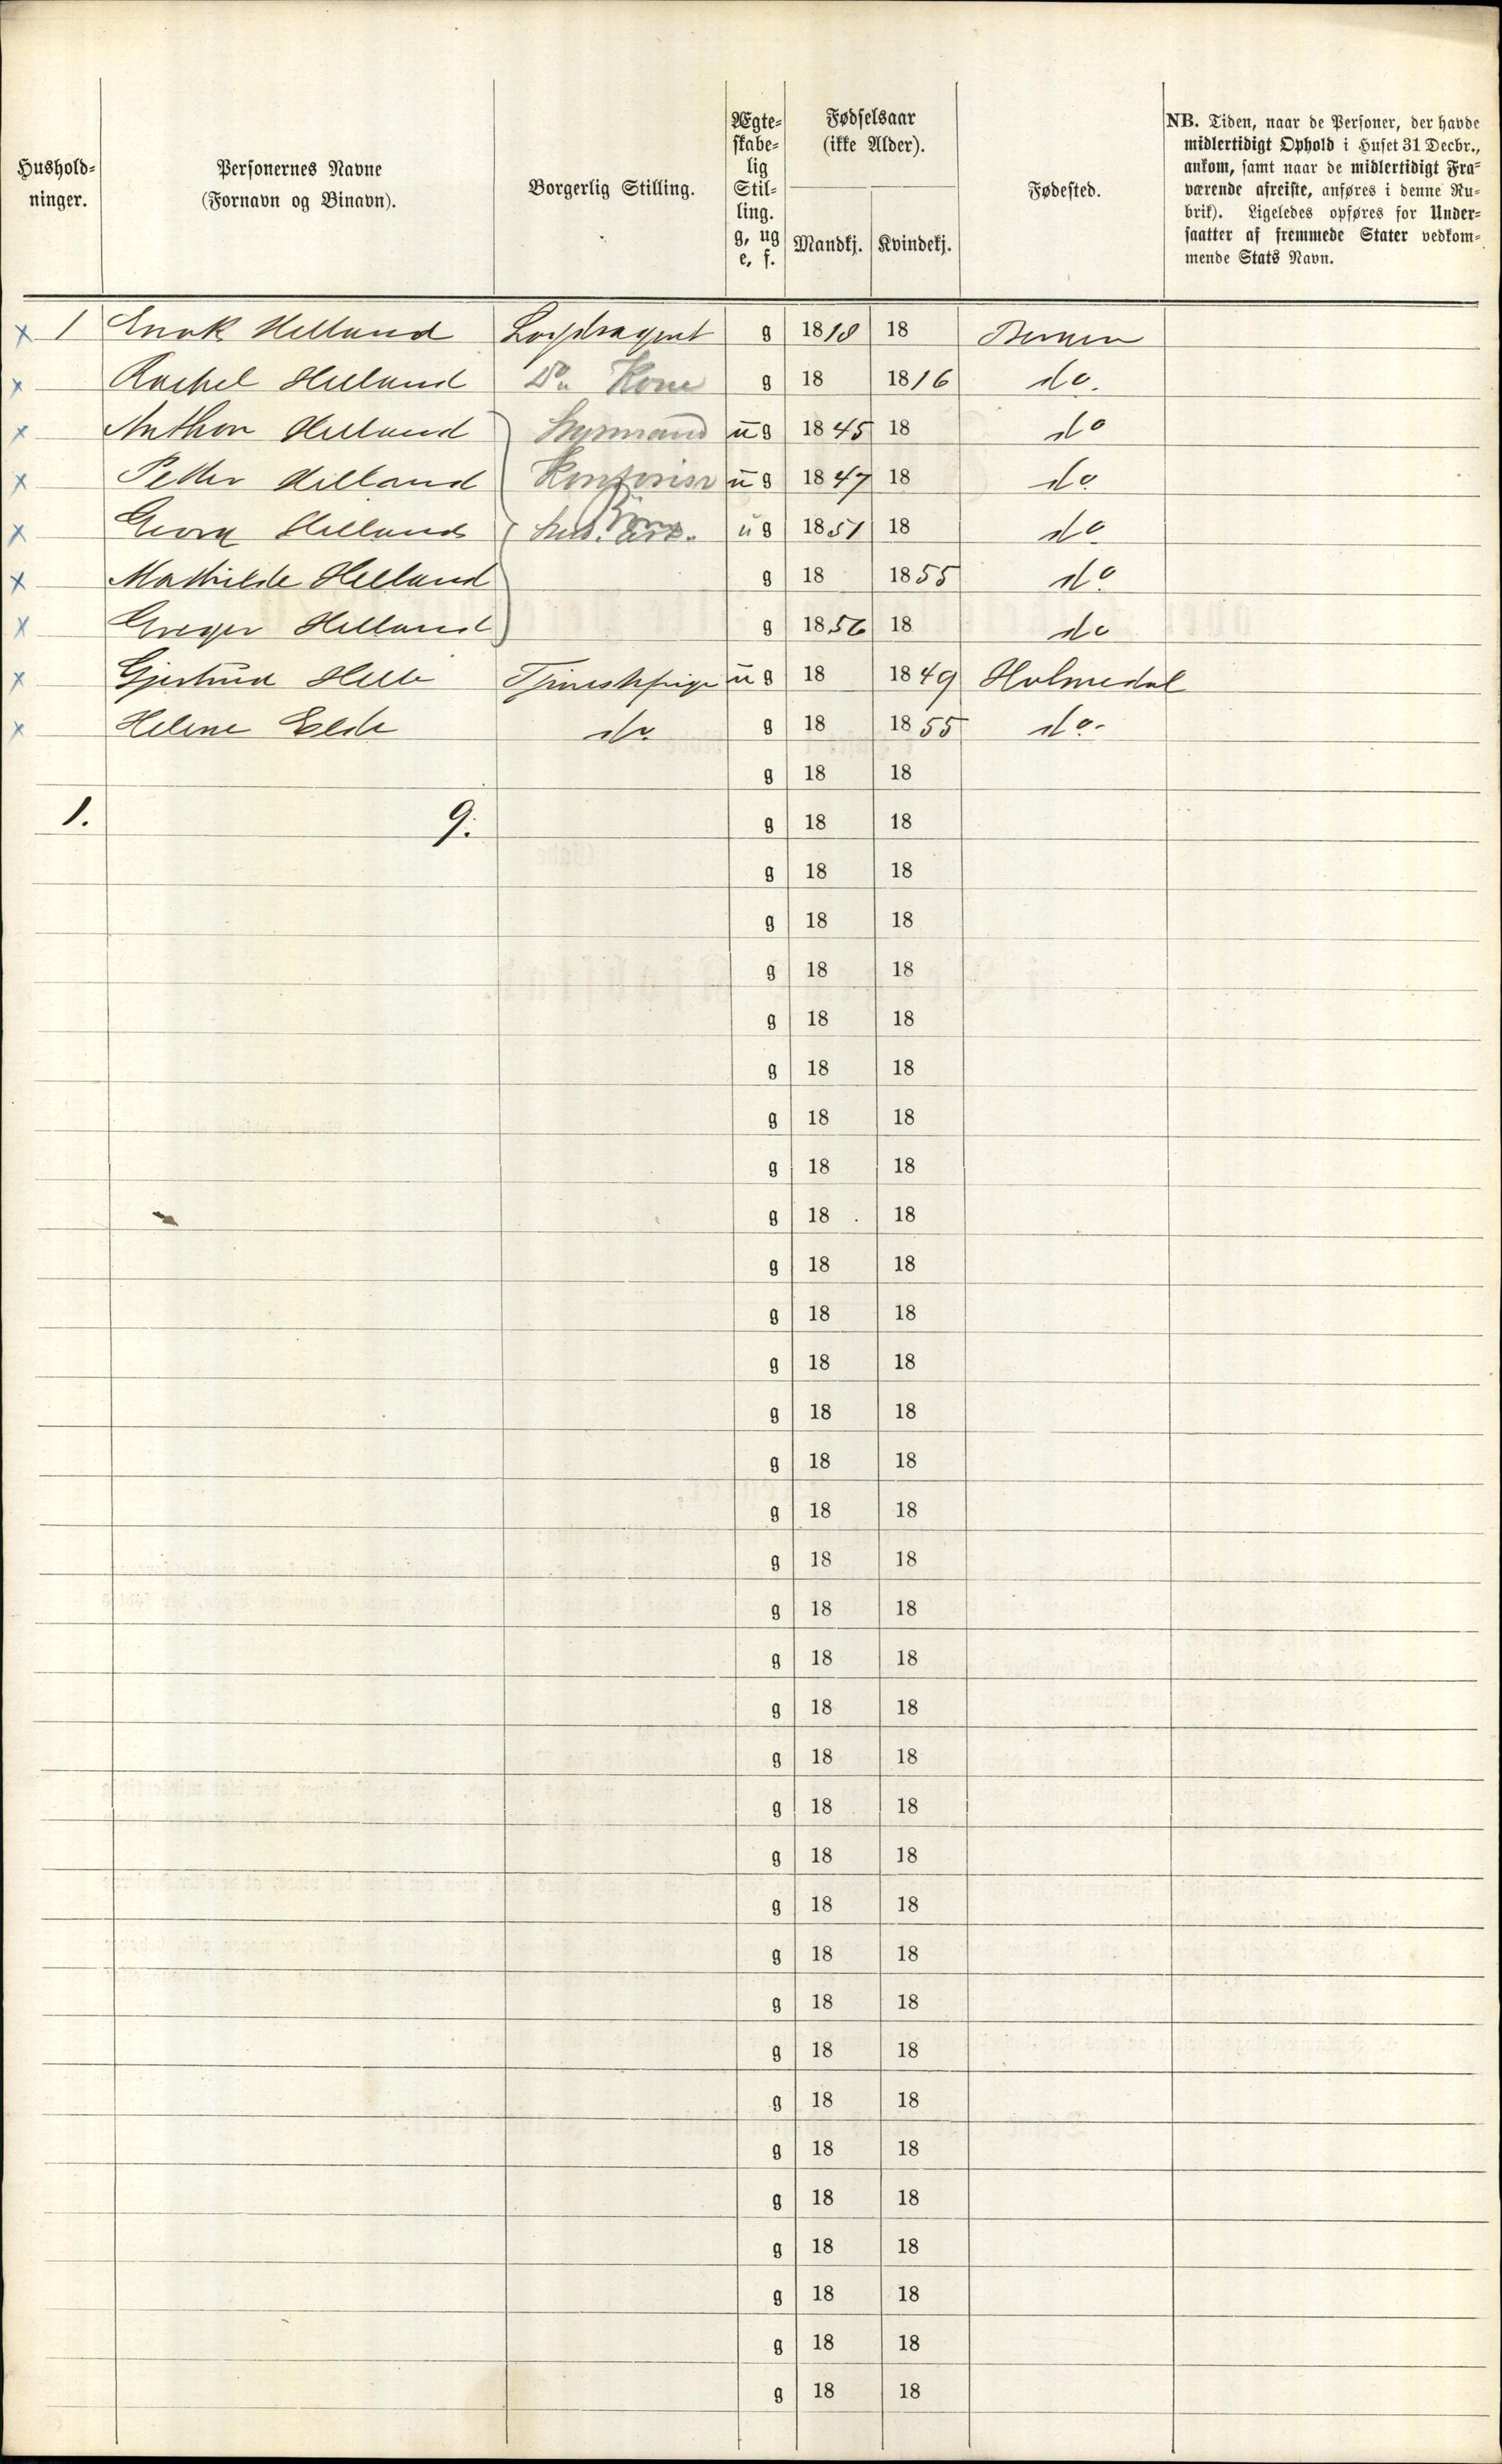 Hushold-
ninger.
Personernes Navne
(Fornavn og Binavn).
Borgerlig Stilling.
Ægte-
skabe-
lig
Stil-
ling.
g, ug
e, f.
Fødselsaar
(ikke Alder).
Mandkj. Kvindekj.
Fødested.
NB. Tiden, naar de Personer, der havde
midlertidigt Ophold i Huset 31 Decbr.,
ankom, samt naar de midlertidigt Fra-
værende afreiste, anføres i denne Ru-
brik). Ligeledes opføres for Under-
saatter af fremmede Stater vedkom-
mende Stats Navn.
x 1 Enok Helland g 1818 18 Bergen
x Rachel Helland Do Kone g 18 1816 do.
x Anthon Helland Styrmand ug 1845 18 do
x Petter Helland Kontorist ug 1847 18 do
x Georg Helland Børn ug 1851 18 do
x Mathilde Helland g 18 1855 do
x Greger Helland g 1856 18 do
x Gjertrud Helle Tjenestepige ug 18 1849 Holmedal
x Helene Elde do g 18 1855 do.
g 18 18
1. 9. g 18 18
g 18 18
g 18 18
g 18 18
g 18 18
g 18 18
g 18 18
g 18 18
g 18 18
g 18 18
g 18 18
g 18 18
g 18 18
g 18 18
g 18 18
g 18 18
g 18 18
g 18 18
g 18 18
g 18 18
g 18 18
g 18 18
g 18 18
g 18 18
g 18 18
g 18 18
g 18 18
g 18 18
g 18 18
g 18 18
g 18 18
g 18 18
g 18 18